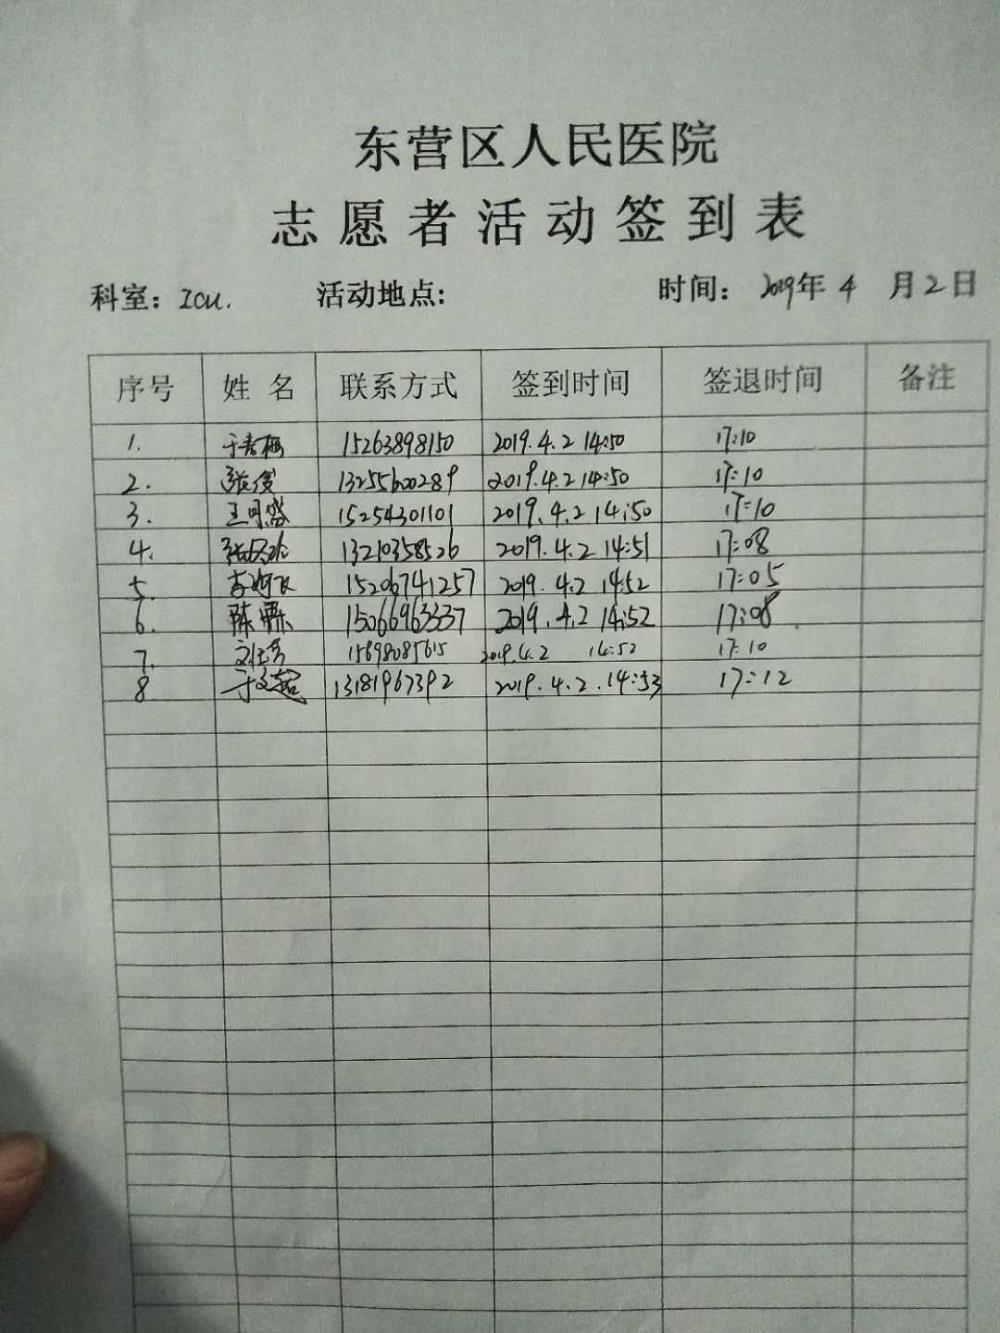 东营区人民医院
志愿者活动签到表
科室：ICU. 活动地点: 时间：2019年4月2日
序号 姓名 联系方式 签到时间 签退时间 备注
1. 15263898150 2019.4.2 14:50 17:10
2. 张俊 13255600289 2019.4.2 14:50 17:10
3. 15254301101 2019.4.2 14:50 17:10
4. 13210358526 2019.4.2 14:51 17:08
5. 15206741257 2019.4.2 14:52 17:05
6. 陈 15066963337 2019.4.2 14:52 17:08
7. 15698085615 2019.4.2 14:52 17:10
8 13181967392 2019.4.2.14:53 17:12